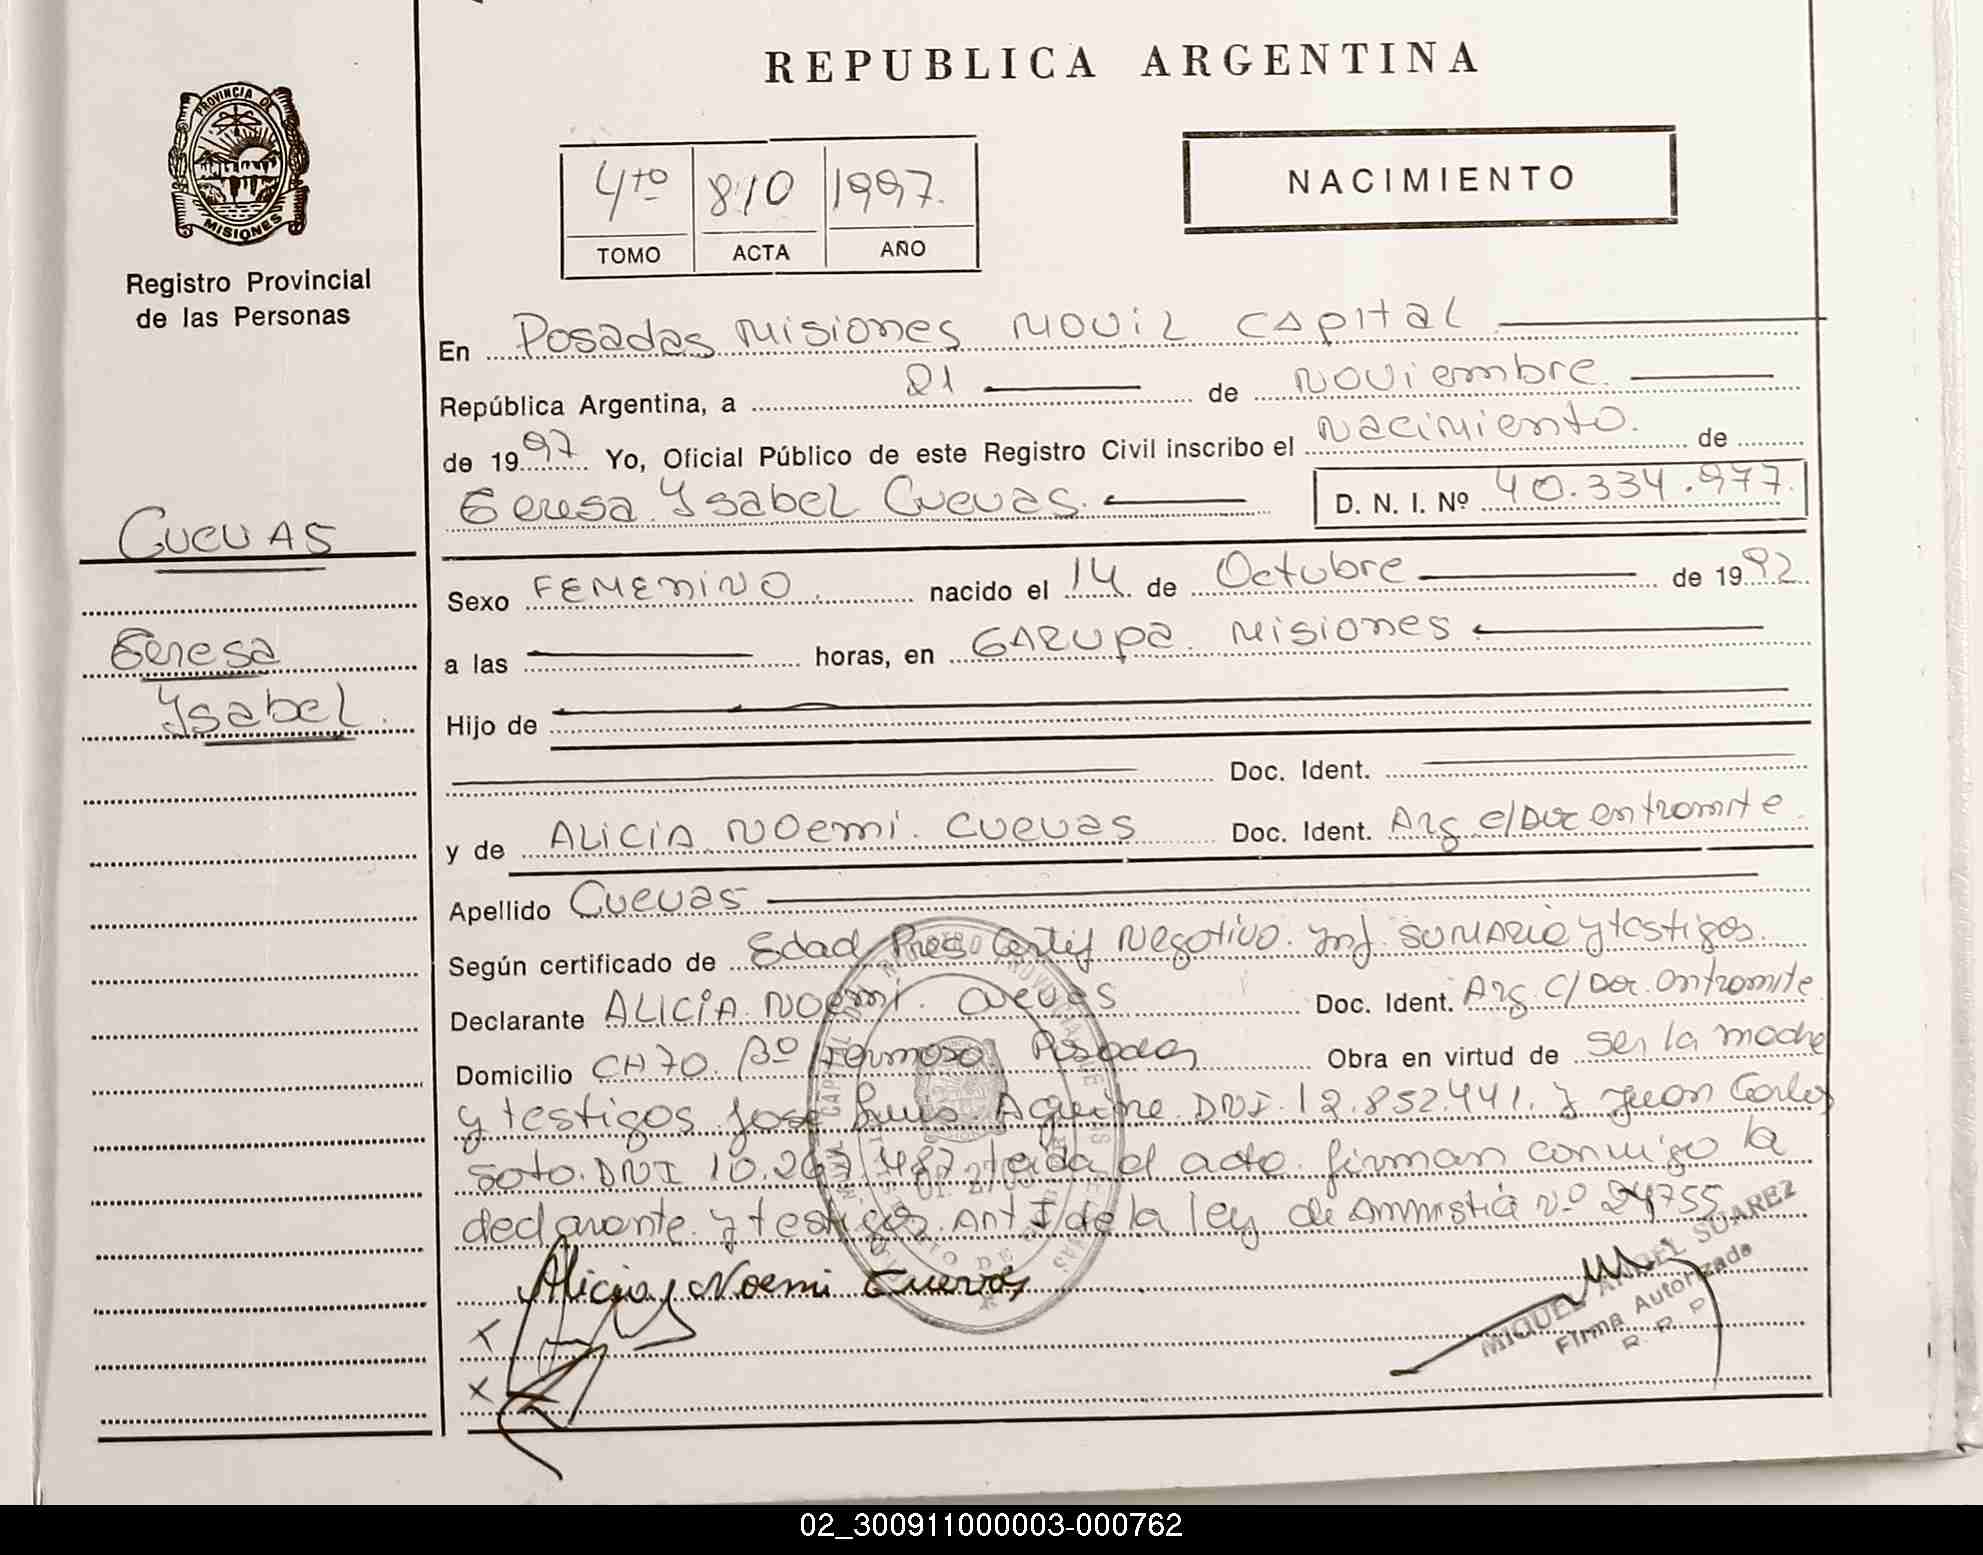 REPUBLICA ARGENTINA
PROVINCIA DE
MISIONES
Registro Provincial
de las Personas
4to 810 1997.
TOMO ACTA AÑO
NACIMIENTO
En Posadas Misiones Movil Capital
República Argentina, a 21 de Noviembre.
de 1997 Yo, Oficial Público de este Registro Civil inscribo el Nacimiento. de
Teresa Ysabel Cuevas. D. N. I. Nº 40.334.977.
CUEVAS
Teresa
Ysabel.
Sexo FEMENINO. nacido el 14 de Octubre de 1992
a las horas, en GARUPA. Misiones
Hijo de
Doc. Ident.
y de ALICIA NOemi. Cuevas Doc. Ident. Arg c/Doc en tramite
Apellido Cuevas
Según certificado de Edad Pres Certif Negativo. Inf. SUMARIO y testigos.
Declarante ALICIA NOemi. Cuevas Doc. Ident. Arg c/ Doc. en tramite
Domicilio CH 70. Bº Hermoso. Posadas Obra en virtud de ser la madre
y testigos. Jose Luis Aguirre. DNI. 12.852.441. y Juan Carlos
Soto. DNI 10.267.487 leida el acta. firman conmigo la
declarante y testigos. Art I de la ley de Amnistia Nº 24755
Alicia Noemi Cuevas
MIGUEL ANGEL SUAREZ
Firma Autorizada
R. P. P
x
x
02_300911000003-000762